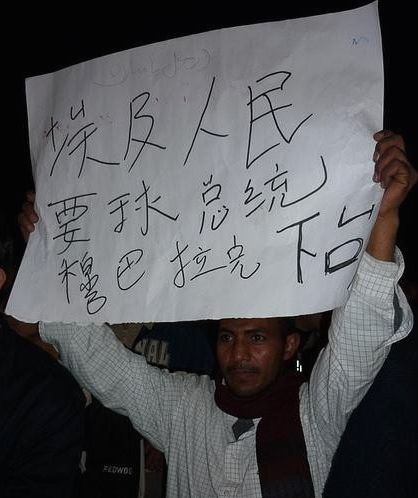 埃及人民
要球总统
穆巴拉克下台